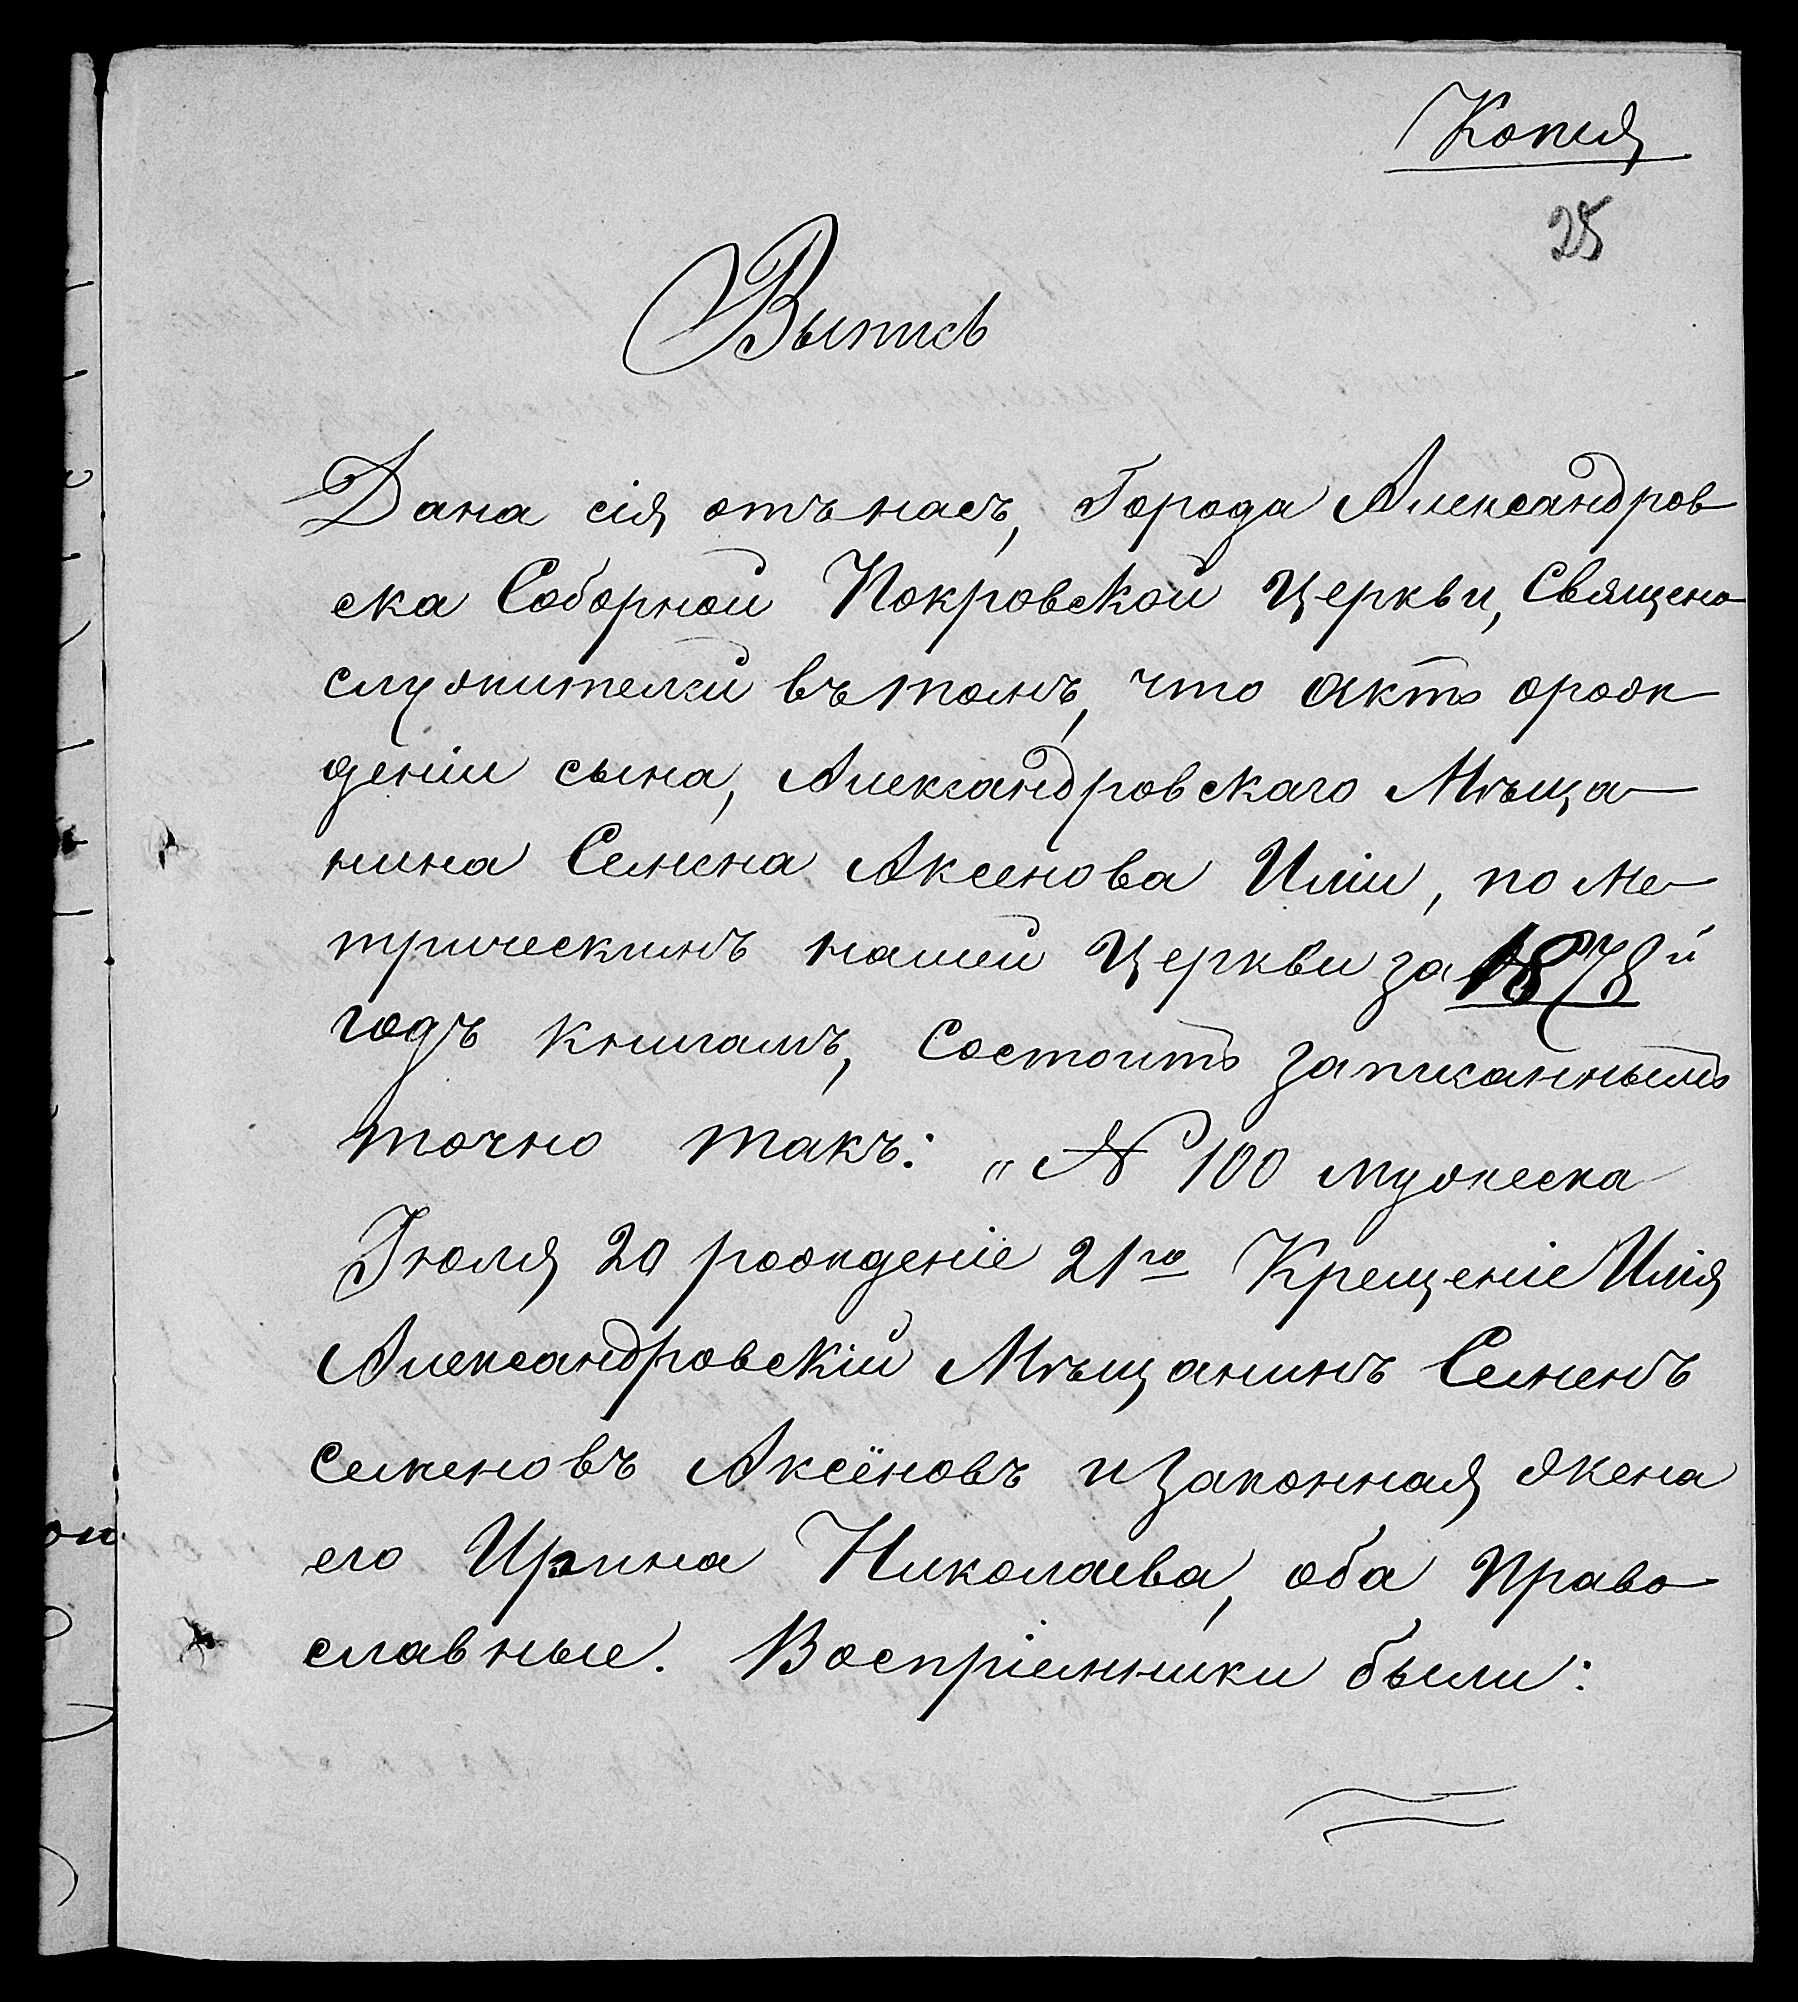 Копия
25
Выпись
Дана сія отъ насъ, Города Александров
ска Соборной Покровской Церкви, Священо
служителей въ томъ, что актъ о рож
деніи сына, Александровскаго Мѣща
нина Семена Аксенова Иліи, по ме
трическимъ нашей Церкви за 1878й
годъ книгамъ, Состоитъ записаннымъ
точно такъ: „№ 100 мужеска
Іюля 20 рожденіе 21го Крещеніе Илія
Александровскій Мѣщанинъ Семенъ
Семеновъ Аксёновъ и законная жена
его Ирина Николаева, оба Право
славные. Воспріемники были: